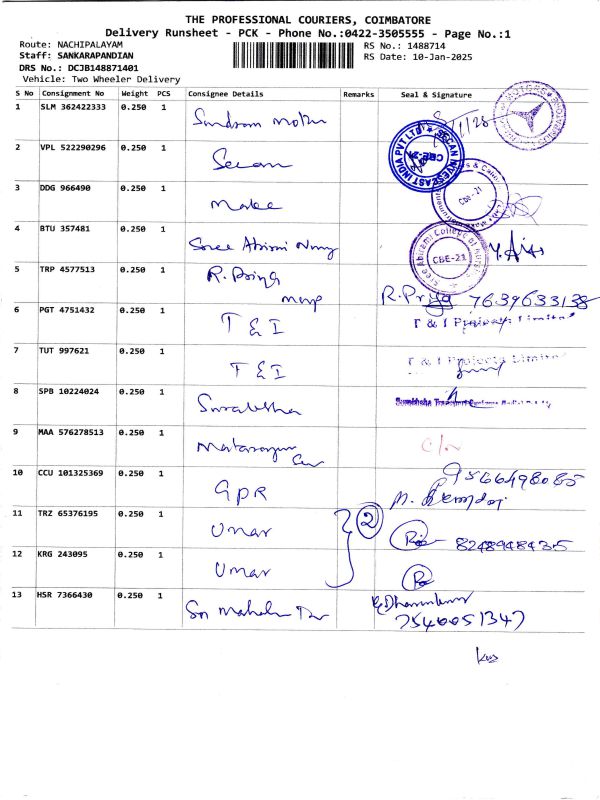 THE PROFESSIONAL COURIERS, COIMBATORE
Delivery Runsheet - PCK - Phone No.:0422-3505555 - Page No.:1
Route: NACHIPALAYAM
RS No.: 1488714
Staff: SANKARAPANDIAN
RS Date: 10-Jan-2025
DRS No.: DCJB148871401
Vehicle: Two Wheeler Delivery
S No Consignment No Weight PCS Consignee Details Remarks Seal & Signature
1 SLM 362422333 0.250 1 Sundram Motor
2 VPL 522290296 0.250 1 Secan SECAN INVESCAST INDIA PVT LTD CBE-21
3 DDG 966490 0.250 1 CBE-21
4 BTU 357481 0.250 1 Sree Abirami Nung Sree Abirami College of CBE-21
5 TRP 4577513 0.250 1 R. Priya R. Priya 7639633138
6 PGT 4751432 0.250 1 T & I T & I Projects Limited
7 TUT 997621 0.250 1 T & I T & I Projects Limited
8 SPB 10224024 0.250 1 Surabhsha
9 MAA 576278513 0.250 1
10 CCU 101325369 0.250 1 GPR 9566498085
11 TRZ 65376195 0.250 1 Umar 2 8248948435
12 KRG 243095 0.250 1 Umar
13 HSR 7366430 0.250 1 Sri 7540051347